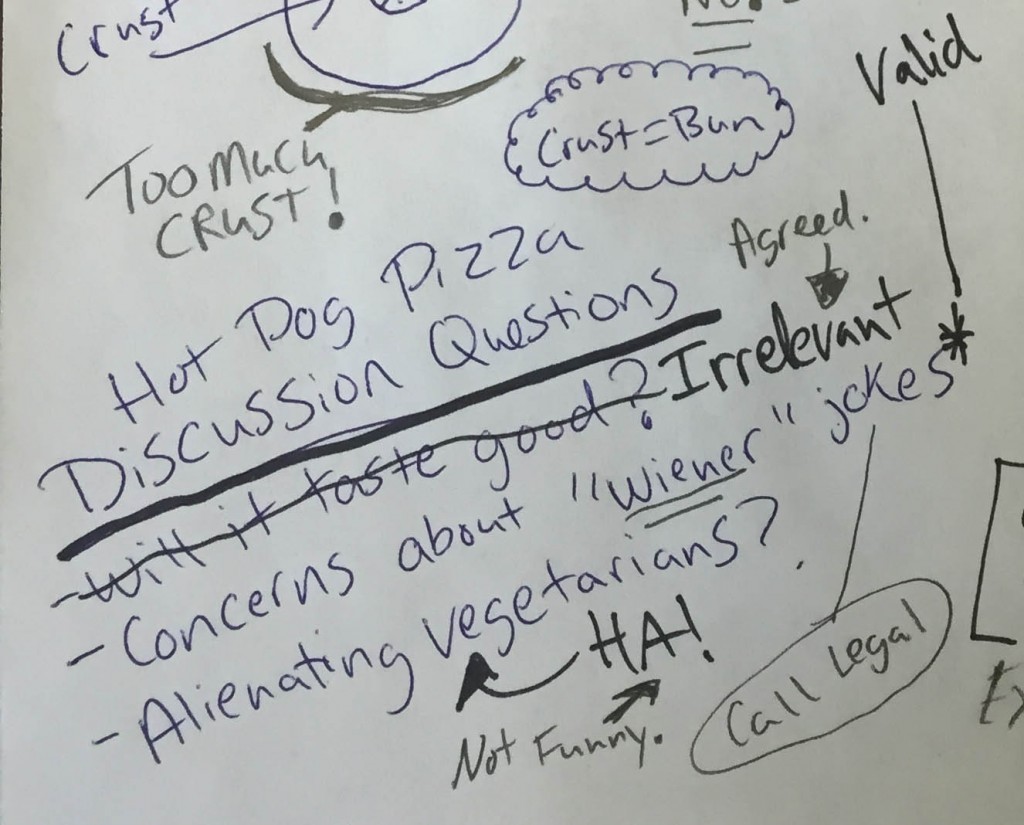 Crust
No.
Valid
Crust=Bun
Too Much
CRUST!
Agreed.
Hot Dog Pizza
Discussion Questions
-Will it taste good? Irrelevant
-Concerns about "wiener" jokes*
-Alienating vegetarians?
HA!
Not Funny.
Call Legal